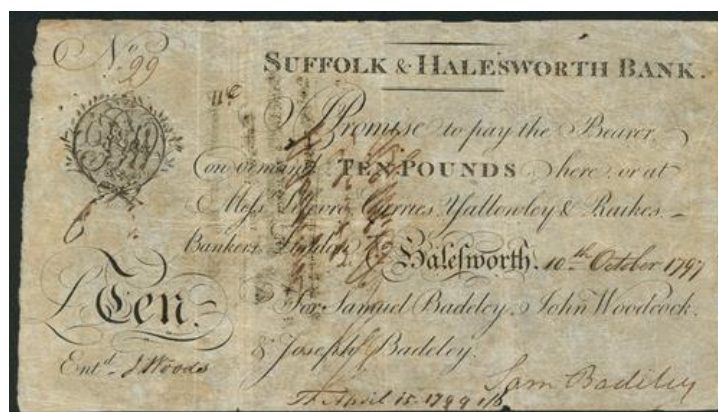 No. 99
SUFFOLK & HALESWORTH BANK.
I Promise to pay the Bearer
on demand TEN POUNDS here or at
Mess. Lefevre, Curries, Yallowley & Raikes
Bankers London
Halesworth. 10th October 1797
£ Ten.
For Samuel Badeley, John Woodcock,
& Joseph Badeley.
Entd. J Woods
Sam Badeley
April 15 1799